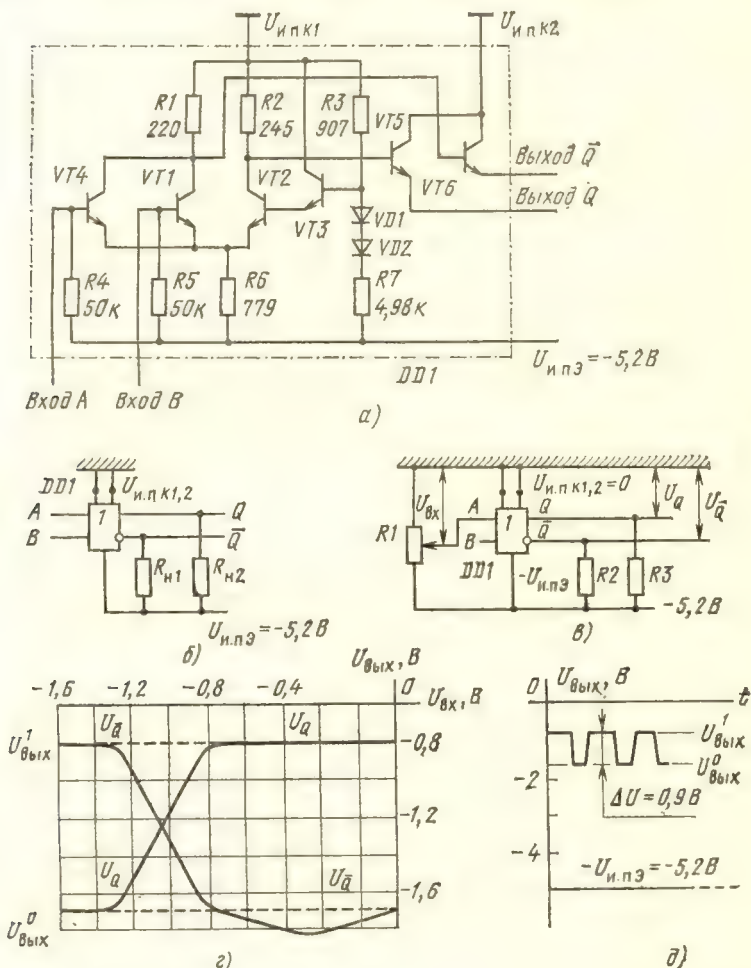 U и.пк1 U и.пк2
R1 220 R2 245 R3 907 VT5
Выход Q̄
VT4 VT1 VT2 VT6
Выход Q
VT3 VD1
VD2
R4 50к R5 50к R6 779 R7 4,98к
U и.пЭ = -5,2В
Вход A Вход B DD1
а)
DD1 U и.пк1,2
A 1 Q
B Q̄
Rн1 Rн2
U и.пЭ = -5,2В
б)
Uвх U и.пк1,2 = 0 UQ UQ̄
R1 A 1 Q
B Q̄
DD1 -U и.пЭ R2 R3
-5,2В
в)
Uвых, В
-1,6 -1,2 -0,8 -0,4 0 Uвх, В
U¹вых UQ̄ UQ -0,8
-1,2
UQ UQ̄ -1,6
U⁰вых
г)
0 Uвых, В t
U¹вых
-2 U⁰вых
ΔU = 0,9В
-4
-U и.пЭ = -5,2В
д)